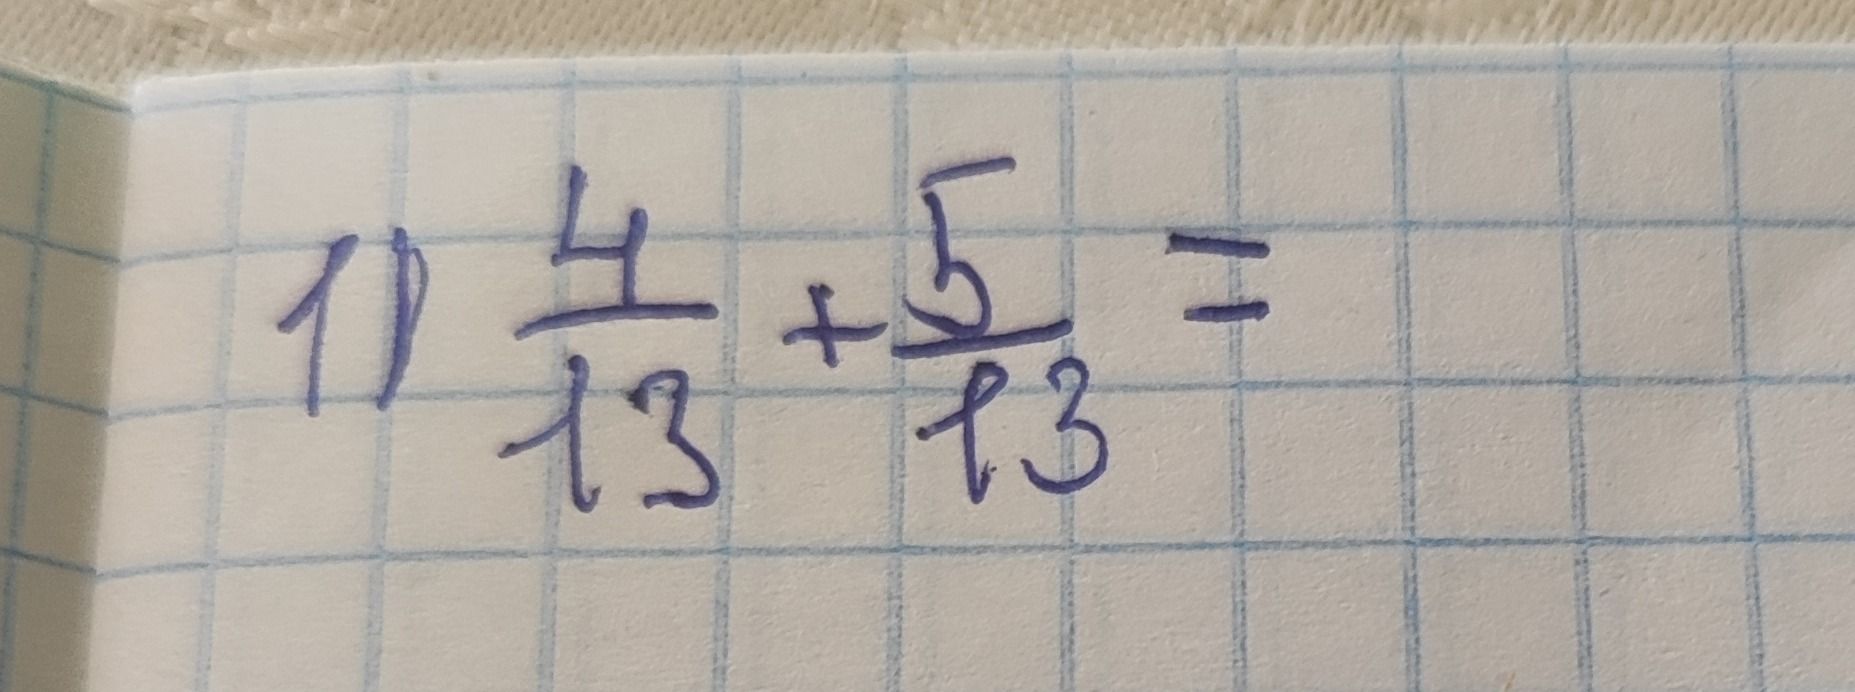 1) 4/13 + 5/13 =